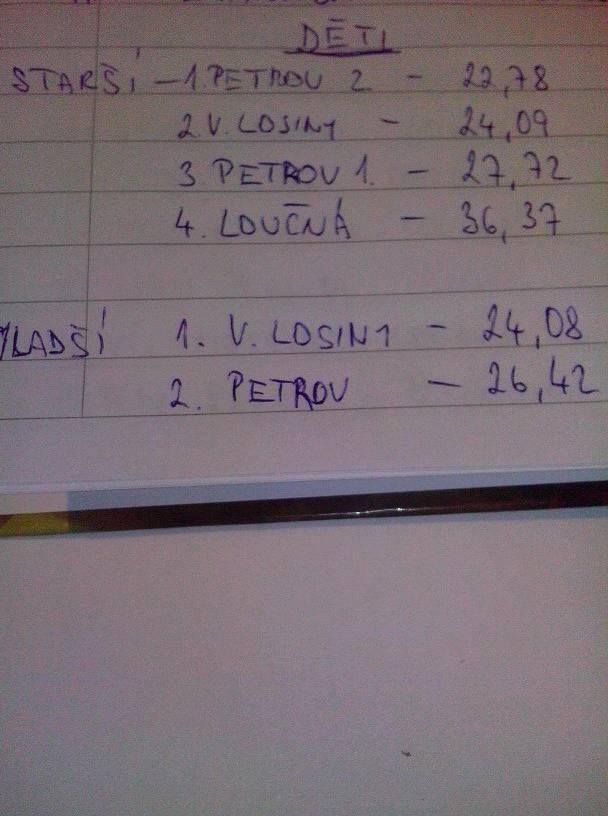 DĚTI
STARŠÍ - 1. PETROV 2 - 22,78
2. V. LOSINY - 24,09
3 PETROV 1. - 27,72
4. LOUČNÁ - 36,37
MLADŠÍ 1. V. LOSINY - 24,08
2. PETROV - 26,42